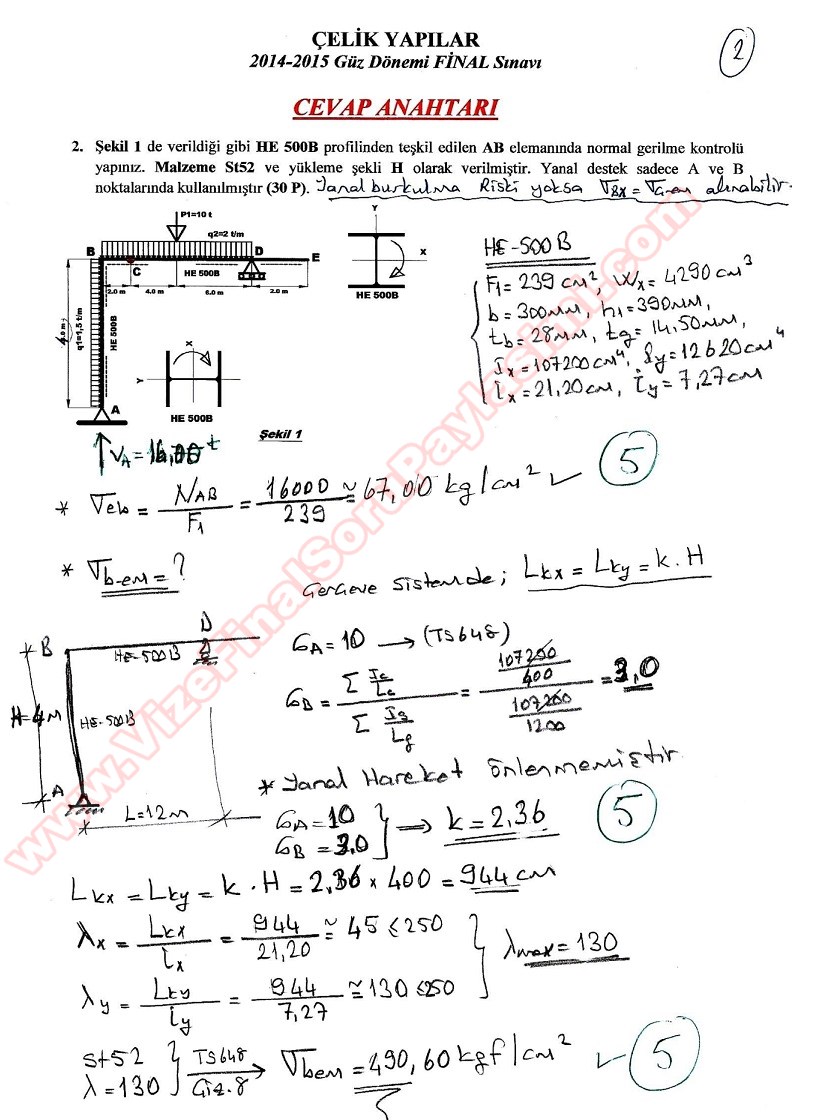 ÇELİK YAPILAR
2014-2015 Güz Dönemi FİNAL Sınavı
2
CEVAP ANAHTARI
2. Şekil 1 de verildiği gibi HE 500B profilinden teşkil edilen AB elemanında normal gerilme kontrolü
yapınız. Malzeme St52 ve yükleme şekli H olarak verilmiştir. Yanal destek sadece A ve B
noktalarında kullanılmıştır (30 P). Yanal burkulma Riski yoksa σBx = σç-em alınabilir.
P1=10 t
q2=2 t/m
B
D
E
C
HE 500B
2.0 m
4.0 m
6.0 m
2.0 m
q1=1,5 t/m
HE 500B
A
Y
X
HE 500B
X
Y
HE 500B
Şekil 1
HE-500B
F1 = 239 cm², Wx = 4290 cm³
b = 300mm, h1 = 390mm,
tb = 28mm, tg = 14,50mm,
Ix = 107200cm⁴, Iy = 12620cm⁴
ix = 21,20cm, iy = 7,27cm
VA = 16,00 t
* σeb = NAB / F1 = 16000 / 239 ≅ 67,00 kg/cm² ✓
5
* σb-em = ?
Çerçeve sistemde; Lkx = Lky = k.H
B
D
HE-500B
H=4m
HE-500B
A
L=12m
GA = 10 → (TS648)
GB = Σ Ic/Lc / Σ Ig/Lg = 107200/400 / 107200/1200 = 3,0
* Yanal Hareket önlenmemiştir
GA = 10
GB = 3.0 } → k = 2,36
5
Lkx = Lky = k.H = 2,36 x 400 = 944 cm
λx = Lkx / ix = 944 / 21,20 ≅ 45 ≤ 250
λmax = 130
λy = Lky / iy = 944 / 7,27 ≅ 130 ≤ 250
St52
λ = 130 } TS648 Çiz.8 → σbem = 490,60 kgf/cm² ✓
5
www.VizeFinalSoruPaylasimi.com